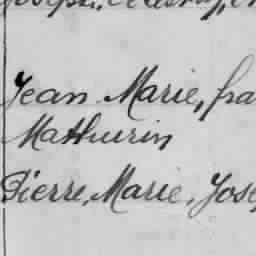 Jean Marie, fra
Mathurin
Pierre, Marie, Jose